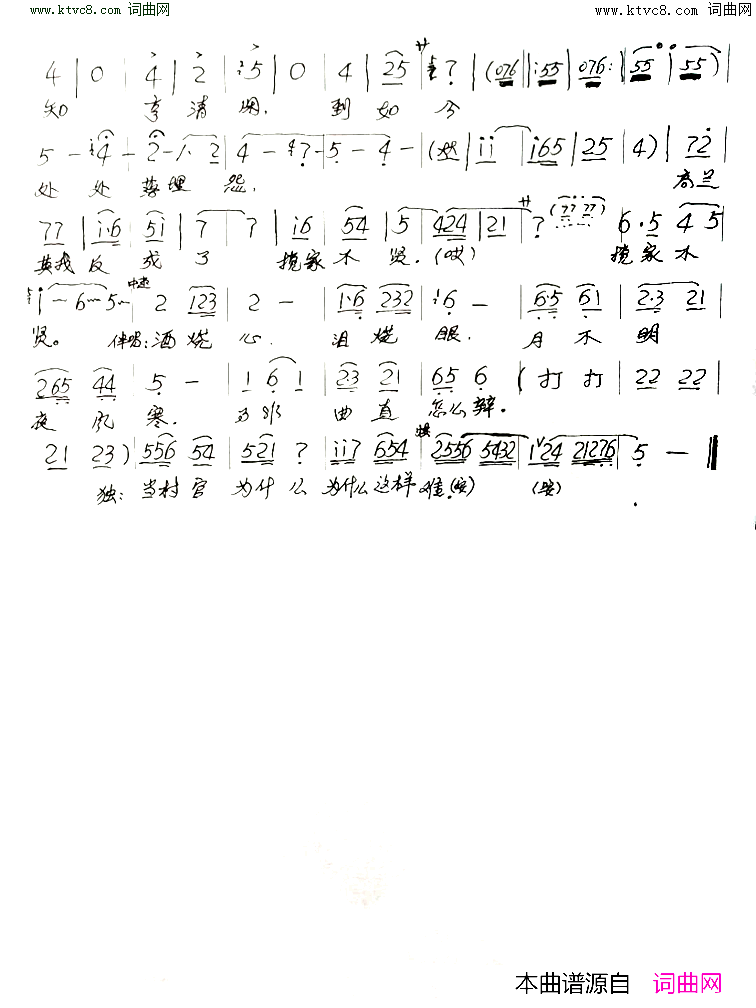 www.ktvc8.com 词曲网 www.ktvc8.com 词曲网
4 | 0 | 4 | 2 | i5 | 0 | 4 | 25 | 7 | (076 | i55 | 076 : | 55 i | 55)
知 享清 到如今
5 - 4 - | 2 - 1· 2 | 4 - 7 - | 5 - 4 - | ( | i i | i65 | 25 | 4) | 72
处 处 落埋怨.
77 | i·6 | 5i | 7 | 7 | i6 | 54 | 5 | 424 | 21 | 7 (77 77) 6·5 4 5
我反成了 搅家不贤.(哎) 搅家不
i - 6 - 5 - 中速 | 2 123 | 2 - | 1·6 232 | i6 - | 6·5 61 | 2·3 21
贤。 伴唱:酒烧心. 泪烧眼. 月不明
265 44 | 5 - | 1 6 1 | 23 21 | 65 6 | (打 打 | 22 22
夜风寒. 曲直怎么辩.
21 23) | 556 54 | 521 7 | ii7 654 | 2556 5432 | 1 24 21276 | 5 -
独:当村官为什么为什么这样难.(安) (安)
本曲谱源自 词曲网